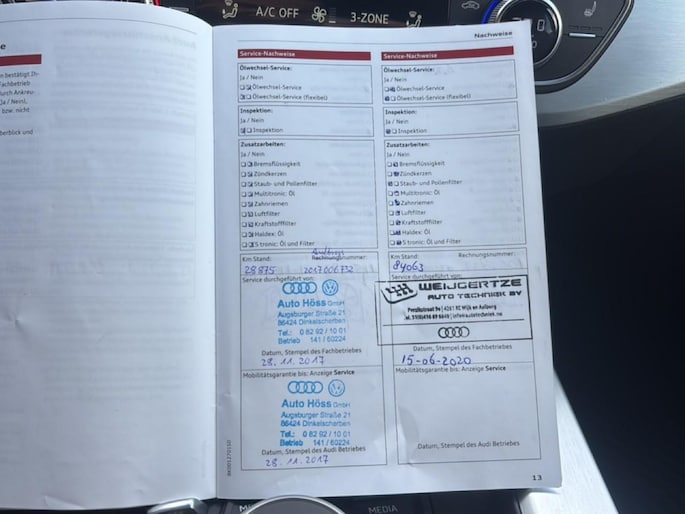 A/C OFF
3-ZONE
Nachweise
Service-Nachweise
Ölwechsel-Service:
Ja / Nein
Ölwechsel-Service
Ölwechsel-Service (flexibel)
Inspektion:
Ja / Nein
Inspektion
Zusatzarbeiten:
Ja / Nein
Bremsflüssigkeit
Zündkerzen
Staub- und Pollenfilter
Multitronic: Öl
Zahnriemen
Luftfilter
Kraftstofffilter
Haldex: Öl
S tronic: Öl und Filter
Km Stand:
Auftrags
Rechnungsnummer:
28875
2017006732
Service durchgeführt von:
Auto Höss GmbH
Augsburger Straße 21
86424 Dinkelscherben
Tel.: 0 82 92 / 10 01
Betrieb 141 / 60224
Datum, Stempel des Fachbetriebes
28.11.2017
Mobilitätsgarantie bis: Anzeige Service
Auto Höss GmbH
Augsburger Straße 21
86424 Dinkelscherben
Tel.: 0 82 92 / 10 01
Betrieb 141 / 60224
Datum, Stempel des Audi Betriebes
28.11.2017
Service-Nachweise
Ölwechsel-Service:
Ja / Nein
Ölwechsel-Service
Ölwechsel-Service (flexibel)
Inspektion:
Ja / Nein
Inspektion
Zusatzarbeiten:
Ja / Nein
Bremsflüssigkeit
Zündkerzen
Staub- und Pollenfilter
Multitronic: Öl
Zahnriemen
Luftfilter
Kraftstofffilter
Haldex: Öl
S tronic: Öl und Filter
Km Stand:
Rechnungsnummer:
84063
Service durchgeführt von:
WEIJGERTZE
AUTO TECHNIEK BV
Datum, Stempel des Fachbetriebes
15-06-2020
Mobilitätsgarantie bis: Anzeige Service
Datum, Stempel des Audi Betriebes
13
MEDIA